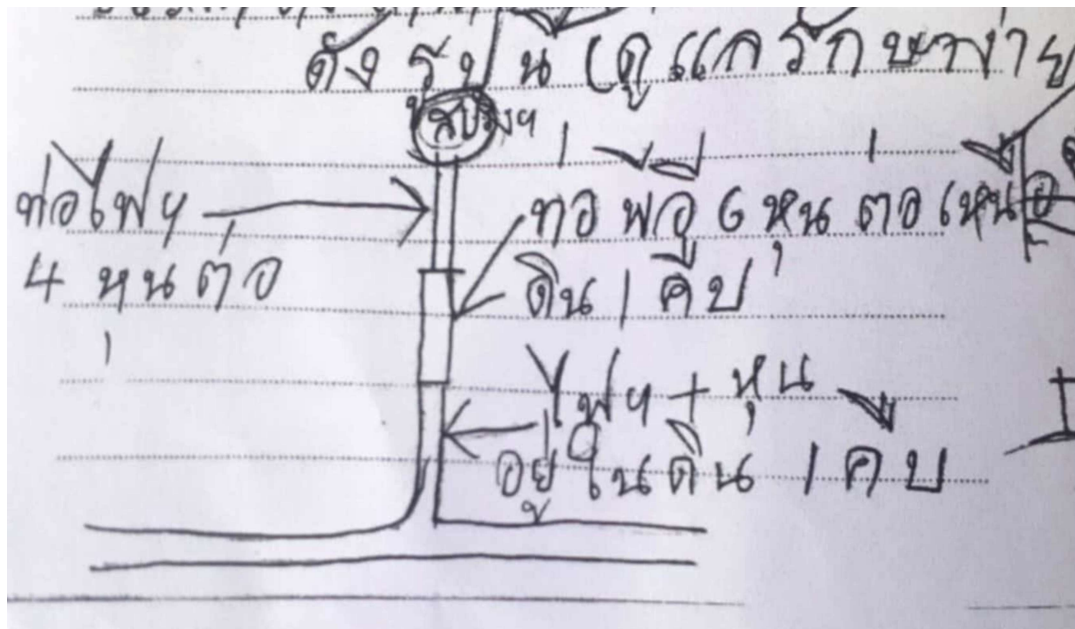 ดังรูปนี้ (ดูแลรักษาง่าย
สปริงฯ
ท่อไฟฯ
4 หุนต่อ
ท่อ พีวี 6 หุน ต่อเหนือ
ดิน 1 คืบ
ไฟฯ 4 หุน
อยู่ในดิน 1 คืบ